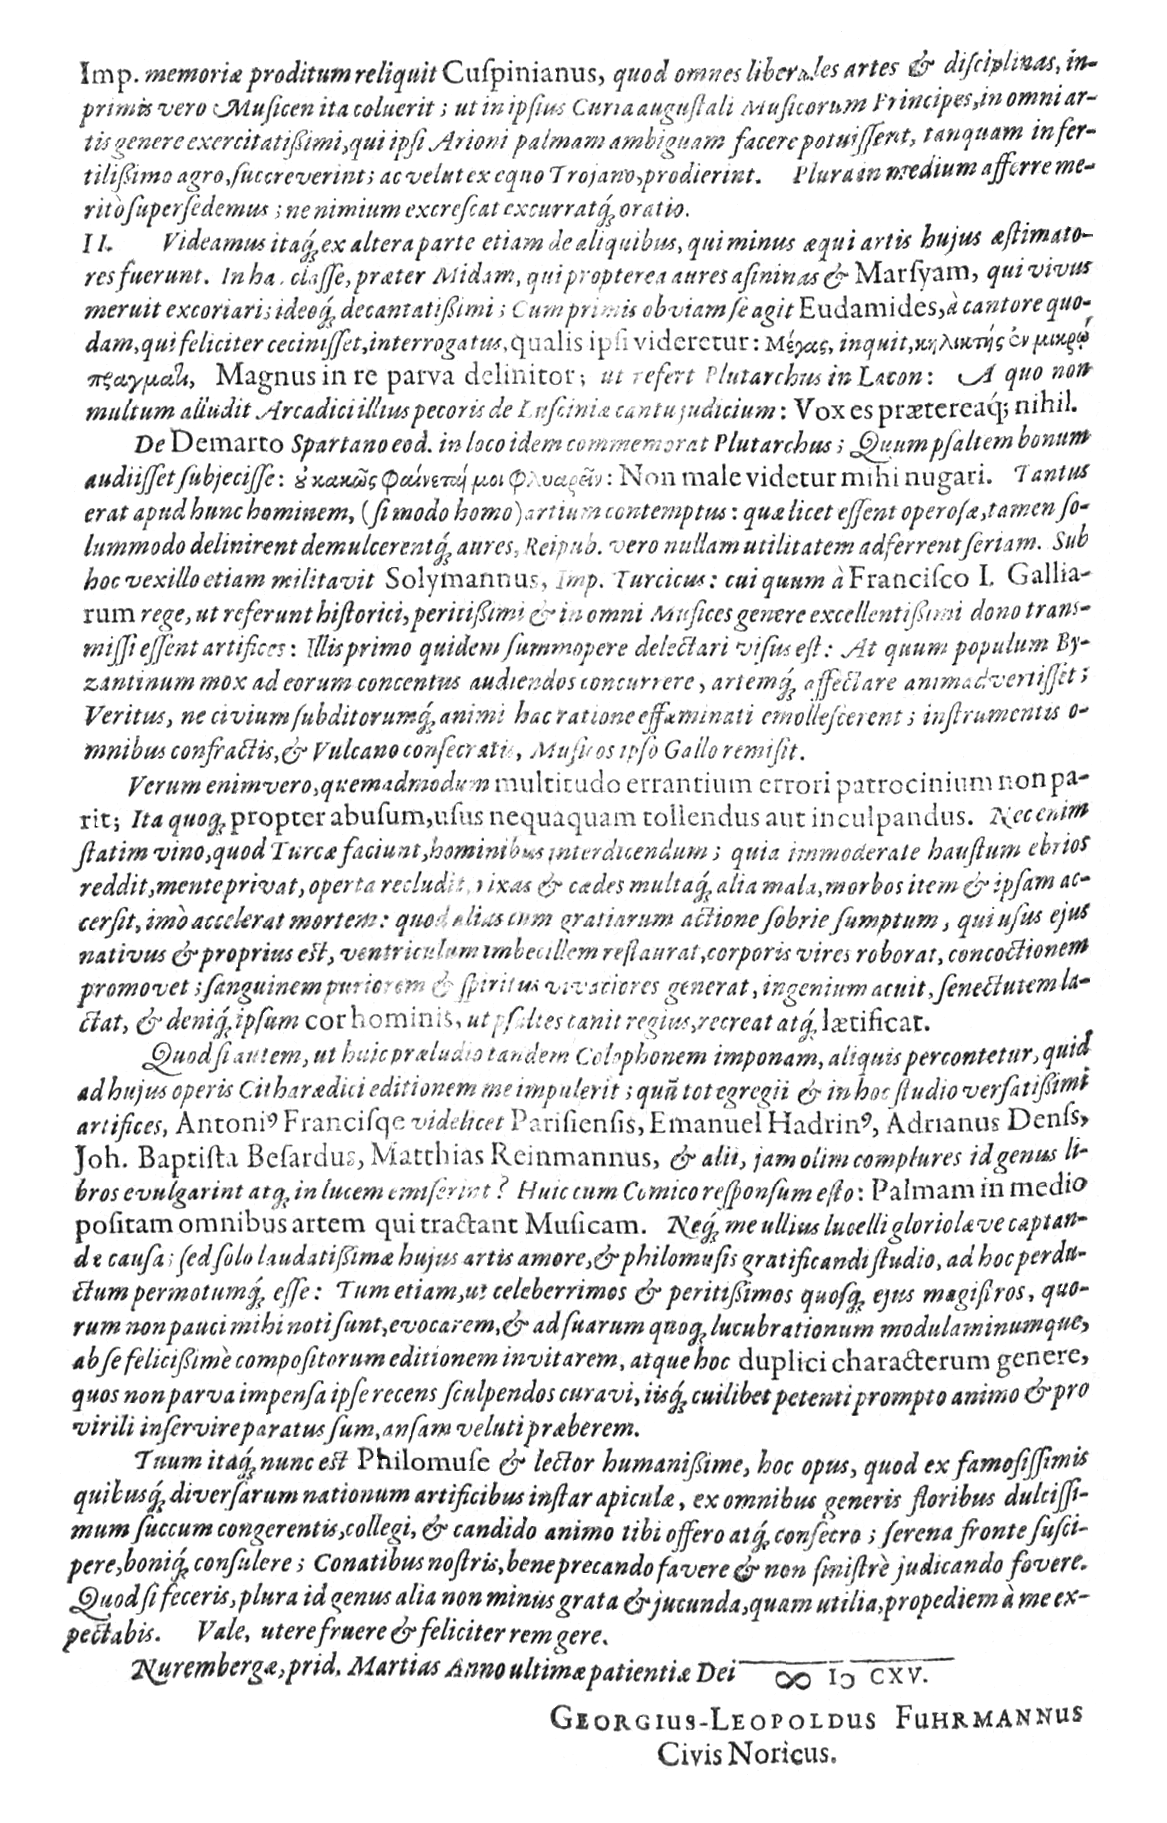 Imp. memoriæ proditum reliquit Cuſpinianus, quod omnes liberales artes & diſciplinas, in-
primis vero Muſicen ita coluerit ; ut in ipſius Curia auguſtali Muſicorum Principes, in omni ar-
tis genere exercitatißimi, qui ipſi Arioni palmam ambiguam facere potuiſſent, tanquam in fer-
tilißimo agro, ſuccreverint; ac velut ex equo Trojano, prodierint. Plura in medium afferre me-
ritò ſuperſedemus ; ne nimium excreſcat excurratq́; oratio.
II. Videamus itaq́; ex altera parte etiam de aliquibus, qui minus æqui artis hujus æſtimato-
res fuerunt. In hac claſſe, præter Midam, qui propterea aures aſininas & Marſyam, qui vivus
meruit excoriari; ideoq́; decantatißimi ; Cum primis obviam ſe agit Eudamides, à cantore quo-
dam, qui feliciter ceciniſſet, interrogatus, qualis ipſi videretur: Μέγας, inquit, κηλικτής ἐν μικρῷ
πράγματι, Magnus in re parva delinitor; ut refert Plutarchus in Lacon: A quo non
multum alludit Arcadici illius pecoris de Luſciniæ cantu judicium: Vox es prætereaq́; nihil.
De Demarto Spartano eod. in loco idem commemorat Plutarchus ; Quum pſaltem bonum
audiiſſet ſubjeciſſe: ȣ κακῶς φαίνεταί μοι φλυαρεῖν: Non male videtur mihi nugari. Tantus
erat apud hunc hominem, (ſi modo homo) artium contemptus: quæ licet eſſent operoſæ, tamen ſo-
lummodo delinirent demulcerentq́; aures, Reipub. vero nullam utilitatem adferrent ſeriam. Sub
hoc vexillo etiam militavit Solymannus, Imp. Turcicus: cui quum à Franciſco I. Gallia-
rum rege, ut referunt hiſtorici, peritißimi & in omni Muſices genere excellentißimi dono trans-
miſſi eſſent artifices: Illis primo quidem ſummopere delectari viſus eſt: At quum populum By-
zantinum mox ad eorum concentus audiendos concurrere, artemq́; affectare animadvertiſſet;
Veritus, ne civium ſubditorumq́; animi hac ratione effæminati emolleſcerent ; inſtrumentis o-
mnibus confractis, & Vulcano conſecratis, Muſicos ipſo Gallo remiſit.
Verum enimvero, quemadmodum multitudo errantium errori patrocinium non pa-
rit; Ita quoq́; propter abuſum, uſus nequaquam tollendus aut inculpandus. Nec enim
ſtatim vino, quod Turcæ faciunt, hominibus interdicendum ; quia immoderate hauſtum ebrios
reddit, mente privat, operta recludit, rixas & cædes multaq́; alia mala, morbos item & ipſam ac-
cerſit, imò accelerat mortem: quod alias cum gratiarum actione ſobrie ſumptum, qui uſus ejus
nativus & proprius eſt, ventriculum imbecillem reſtaurat, corporis vires roborat, concoctionem
promovet ; ſanguinem puriorem & ſpiritus vivaciores generat, ingenium acuit, ſenectutem la-
ctat, & deniq́; ipſum cor hominis, ut pſaltes canit regius, recreat atq́; lætificat.
Quod ſi autem, ut huic præludio tandem Colophonem imponam, aliquis percontetur, quid
ad hujus operis Citharædici editionem me impulerit ; quũ tot egregii & in hoc ſtudio verſatißimi
artifices, Antoniꝰ Franciſqe videlicet Pariſienſis, Emanuel Hadrinꝰ, Adrianus Denſs,
Joh. Baptiſta Beſardus, Matthias Reinmannus, & alii, jam olim complures id genus li-
bros evulgarint atq́; in lucem emiſerint? Huic cum Comico reſponſum eſto: Palmam in medio
poſitam omnibus artem qui tractant Muſicam. Neq́; me ullius lucelli gloriolæve captan-
dæ cauſa ; ſed ſolo laudatißimæ hujus artis amore, & philomuſis gratificandi ſtudio, ad hoc perdu-
ctum permotumq́; eſſe: Tum etiam, ut celeberrimos & peritißimos quoſq́; ejus magiſtros, quo-
rum non pauci mihi noti ſunt, evocarem, & ad ſuarum quoq́; lucubrationum modulaminumque,
ab ſe feliciſſimè compoſitorum editionem invitarem, atque hoc duplici characterum genere,
quos non parva impenſa ipſe recens ſculpendos curavi, iisq́; cuilibet petenti prompto animo & pro
virili inſervire paratus ſum, anſam veluti præberem.
Tuum itaq́; nunc eſt Philomuſe & lector humanißime, hoc opus, quod ex famoſiſſimis
quibusq́; diverſarum nationum artificibus inſtar apiculæ, ex omnibus generis floribus dulciſſi-
mum ſuccum congerentis, collegi, & candido animo tibi offero atq́; conſecro ; ſerena fronte ſuſci-
pere, boniq́; conſulere ; Conatibus noſtris, bene precando favere & non ſiniſtrè judicando fovere.
Quod ſi feceris, plura id genus alia non minùs grata & jucunda, quam utilia, propediem à me ex-
pectabis. Vale, utere fruere & feliciter rem gere.
Nurembergæ, prid. Martias Anno ultimæ patientiæ Dei ꝏ IƆ CXV.
GEORGIUS-LEOPOLDUS FUHRMANNUS
Civis Noricus.